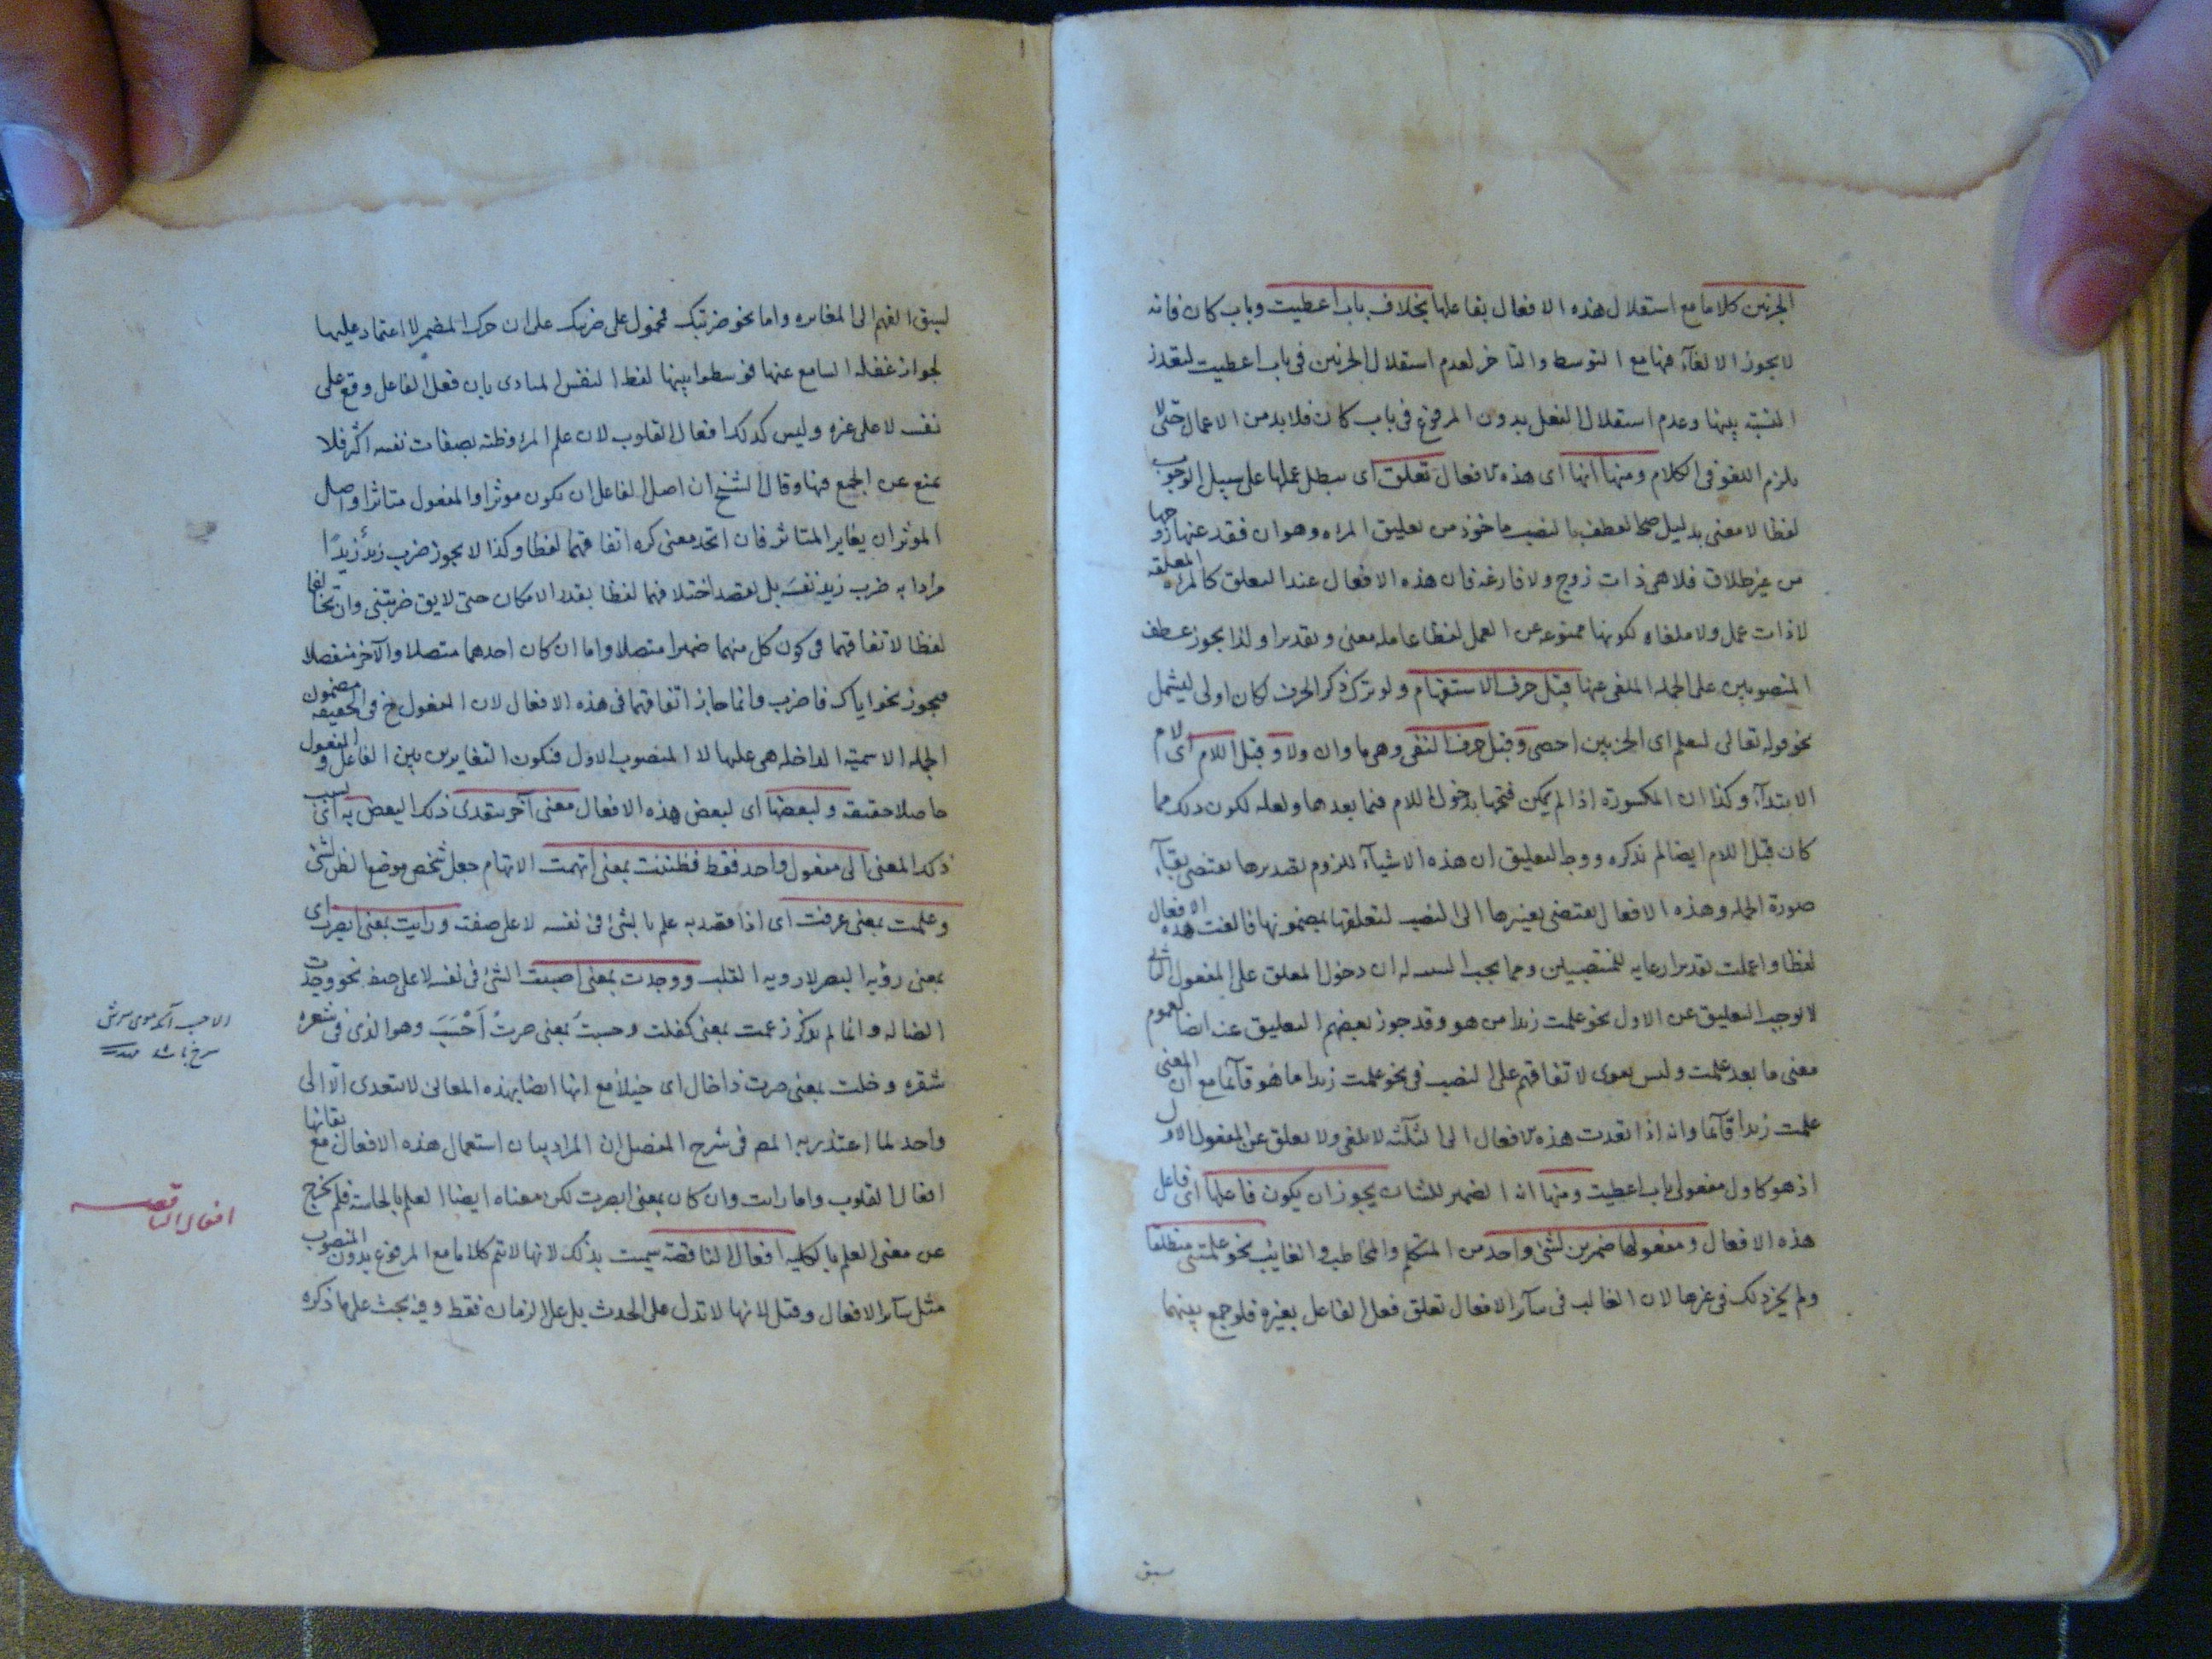 الجزئين كلاما مع استقلال هذه الافعال بفاعلها بخلاف باب اعطيت وباب كان فانه
لا يجوز الالغآء فيها مع التوسط والتاخر لعدم استقلال الجزئين فى باب اعطيت لتعذر
النسبة بينهما وعدم استقلال الفعل بدون المرفوع فى باب كان فلا بد من الاعمال حتى لا
يلزم اللغو فى الكلام ومنها انها اى هذه الافعال تعلق اى يبطل عملها على سبيل الوجوب
لفظا لا معنى بدليل صحة العطف بالنصب ماخوذ من تعليق المراه وهو ان فقد عنها زوجها
من غير طلاق فلا هى ذات زوج ولا فارغه فان هذه الافعال عند التعلق كالمرءة المعلقه
لا ذات عمل ولا ملغاه لكونها ممنوعه عن العمل لفظا عامله معنى وتقديرا ولذا يجوز عطف
المنصوبين على الجمله الملغى عنها قبل حرف الاستفهام ولو ترك ذكر الحرف لكان اولى ليشمل
نحو قوله تعالى لنعلم اى الحزبين احصى وقبل حرف النفى وهى ما وان ولا وقبل اللام اى لام
الابتدآء وكذا ان المكسورة اذا لم يمكن فتحها بدخول اللام فيما بعدها ولعله لكون ذلك مما
كان قبل اللام ايضا لم نذكره ووجه التعليق ان هذه الاشيآء للزوم تصديرها تقتضى بقآء
صورة الجمله وهذه الافعال تقتضى تغييرها الى النصب لتعلقها بمضمونها فالغيت هذه الافعال
لفظا واعملت تقديرا رعايه للمقتضيين ومما يجب التنبيه له ان دخول المعلق على المفعول الثانى
لا يوجب التعليق عن الاول نحو علمت زيدا من هو وقد جوز بعضهم التعليق عنه ايضا لعموم
معنى ما بعد علمت وليس بقوى لاتفاقهم على النصب فى نحو علمت زيدا ما هو قآئما مع ان المعنى
علمت زيدا قآئما وانه اذا تعدت هذه الافعال الى الثلثه لا تلغى ولا تعلق عن المفعول الاول
اذ هو كاول مفعولى باب اعطيت ومنها انه الضمير للشان يجوز ان يكون فاعلها اى فاعل
هذه الافعال ومفعولها ضميرين لشئ واحد من المتكلم والمخاطب والغايب نحو علمتنى منطلقا
ولم يجز ذلك فى غيرها لان الغالب فى سآئر الافعال تعلق فعل الفاعل بغيره فلو جمع بينهما
سبق
لسبق الفهم الى المغايره واما نحو ضربتك فمحمول على ضربك على ان حرك المضمر لا اعتماد عليها
لجواز غفله السامع عنها فوسطوا بينها لفظ النفس المنادى بان فعل الفاعل وقع على
نفسه لا على غيره وليس كذلك افعال القلوب لان علم المرء وظنه بصفات نفسه اكثر فلا
يمنع عن الجمع فيها وقال الشيخ ان اصل الفاعل ان يكون موثرا والمفعول متاثرا واصل
الموثر ان يغاير المتاثر فان اتحد معنى كره اتفاقهما لفظا وكذا لا يجوز ضرب زيدٌ زيدًا
مرادا به ضرب زيد نفسَه بل لقصد اختلافهما لفظا بقدر الامكان حتى لا يق ضربتنى وان تخالفا
لفظا لاتفاقهما فى كون كل منهما ضميرا متصلا واما ان كان احدهما متصلا والآخر منفصلا
فيجوز نحو اياك فاضرب وانما جاز اتفاقهما فى هذه الافعال لان المفعول ح فى الحقيقه مضمون
الجمله الاسميّة الداخله هى عليها لا المنصوب الاول فيكون التغاير بين الفاعل والمفعول
حاصلا حقيقه ولبعضها اى لبعض هذه الافعال معنى آخر يتعدى ذلك البعض به اى بسبب
ذلك المعنى الى مفعول واحد فقط فظننت بمعنى اتهمت الاتهام جعل شخص موضع الظن لشئ
وعلمت بمعنى عرفت اى اذا قصد به علم بالشئ فى نفسه لا على صفته ورايت بمعنى ابصرت اى
بمعنى رؤية البصر لا رويه القلب ووجدت بمعنى اصبت الشئ فى نفسه لا على صفه نحو وجدت
الضاله وانما لم يذكر زعمت بمعنى كفلت وحسبتُ بمعنى صرتُ اَحْسَبَ وهو الذى فى شعره
شقره وخلت بمعنى صرت ذا خال اى خيلآء مع انها ايضا بهذه المعانى لا تتعدى الّا الى
واحد لما اعتذر به المص فى شرح المفصل ان المراد بيان استعمال هذه الافعال مع بقائها
افعال القلوب واما رايت وان كان بمعنى ابصرت لكن معناه ايضا العلم بالحاسّه فلم يخرج
عن معنى العلم بالكليه افعال الناقصة سميت بذلك لانها لا تتم كلاما مع المرفوع بدون المنصوب
مثل سآئر الافعال وقيل لانها لا تدل على الحدث بل على الزمان فقط وفيه بحث علمها ذكره
الاحسب آنكه موى سرش
سرخ باشد
افعال الناقصه